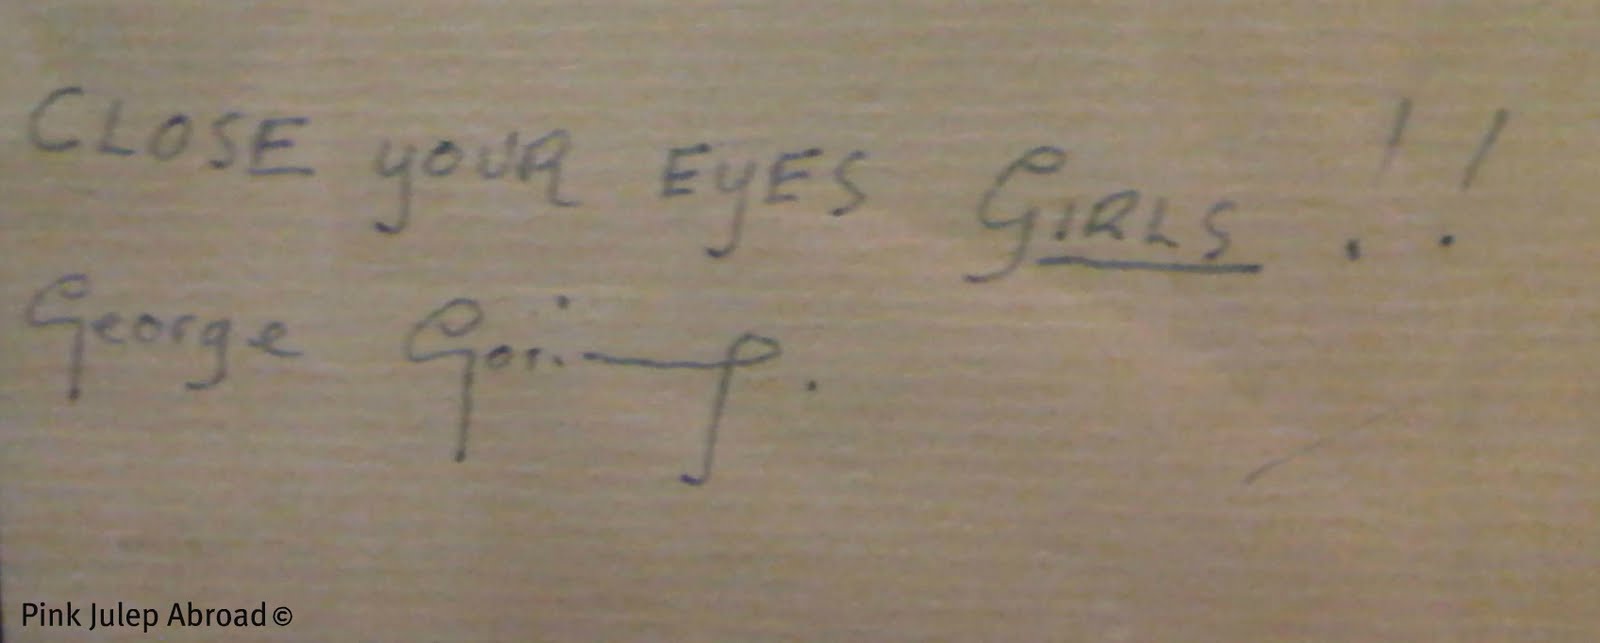 CLOSE YOUR EYES GIRLS !!
George Goring.
Pink Julep Abroad ©